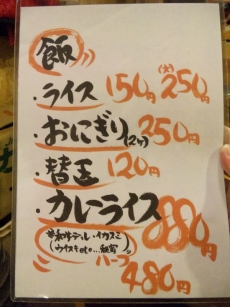 飯
・ライス 150円 (大)250円
・おにぎり(2ヶ) 250円
・替玉 120円
・カレーライス 880円
(和牛テール・イカスミ
ウイスキetc...秘密)
ハーフ 480円